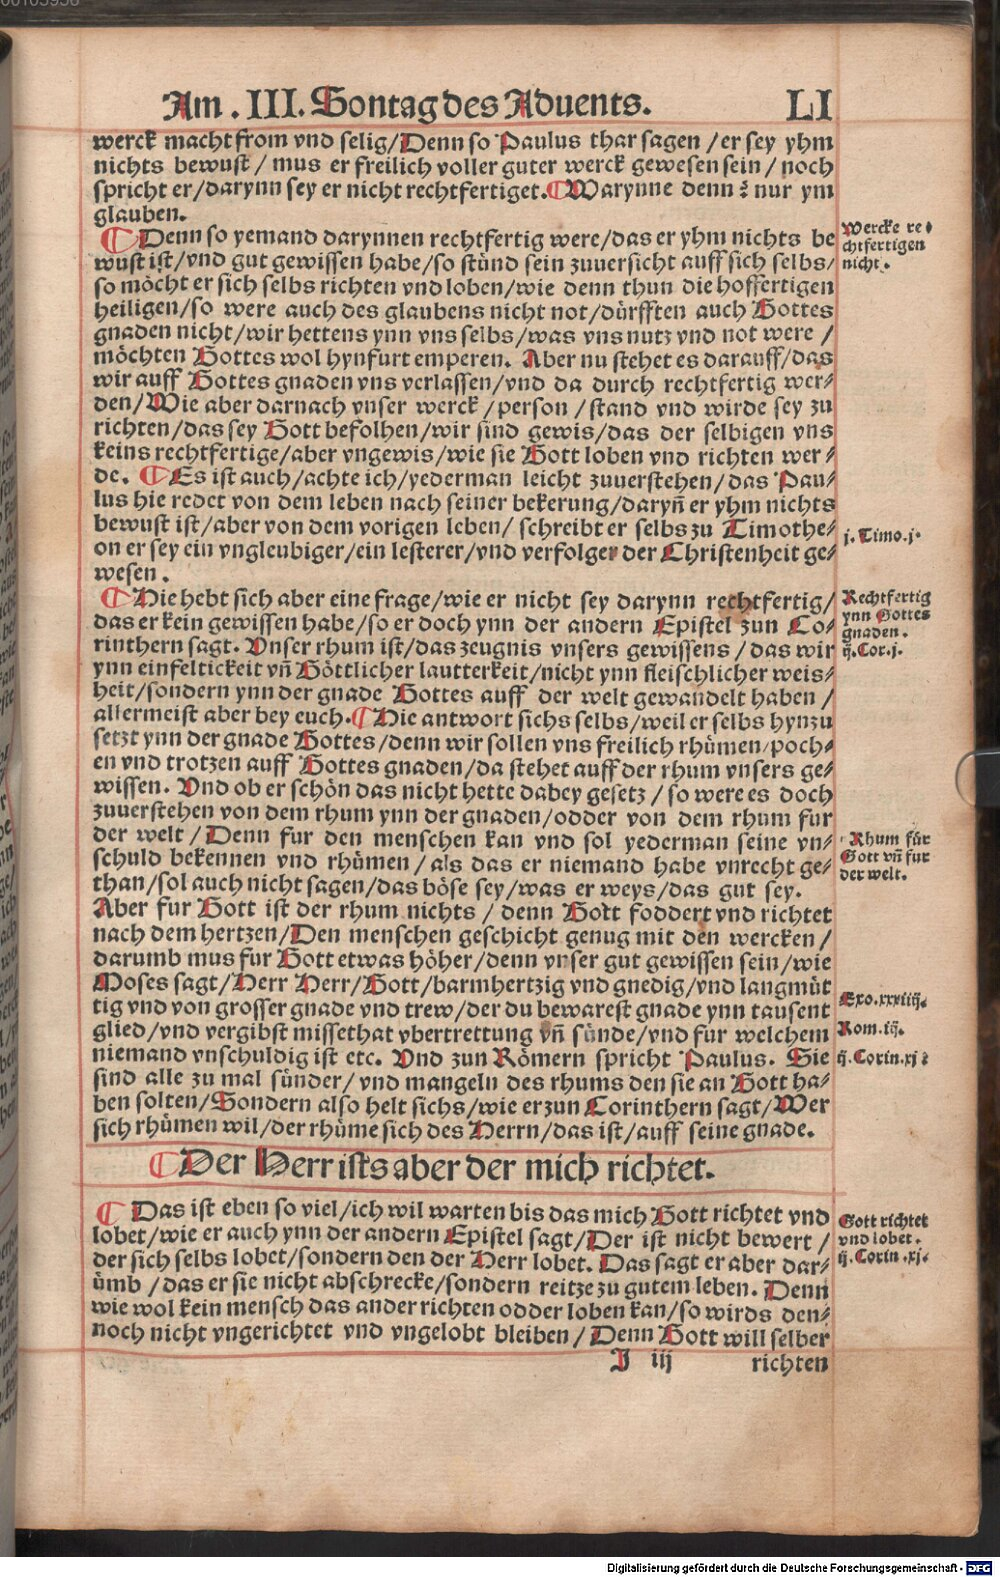 Am . III. Sontag des Aduents. LI
werck macht from vnd selig/Denn so Paulus thar sagen /er sey yhm
nichts bewust / mus er freilich voller guter werck gewesen sein / noch
spricht er/darynn sey er nicht rechtfertiget. ¶Warynne denn? nur ym
glauben.
¶ Denn so yemand darynnen rechtfertig were/das er yhm nichts be
wust ist/vnd gut gewissen habe/so stünd sein zuuersicht auff sich selbs/
so möcht er sich selbs richten vnd loben/wie denn thun die hoffertigen
heiligen/so were auch des glaubens nicht not/dürfften auch Gottes
gnaden nicht/wir hettens ynn vns selbs/was vns nutz vnd not were /
möchten Gottes wol hynfurt emperen. Aber nu stehet es darauff/das
wir auff Gottes gnaden vns verlassen/vnd da durch rechtfertig wer⸗
den/Wie aber darnach vnser werck /person /stand vnd wirde sey zu
richten/das sey Gott befolhen/wir sind gewis/das der selbigen vns
keins rechtfertige/aber vngewis/wie sie Gott loben vnd richten wer⸗
de. ¶Es ist auch/achte ich/yederman leicht zuuerstehen/das Pau⸗
lus hie redet von dem leben nach seiner bekerung/daryn̄ er yhm nichts
bewust ist/aber von dem vorigen leben/ schreibt er selbs zu Timothe⸗
on er sey ein vngleubiger/ein lesterer/vnd verfolger der Christenheit ge⸗
wesen.
¶Hie hebt sich aber eine frage/wie er nicht sey darynn rechtfertig/
das er kein gewissen habe/so er doch ynn der andern Epistel zun Co⸗
rinthern sagt. Vnser rhum ist/das zeugnis vnsers gewissens /das wir
ynn einfeltickeit vn̄ Göttlicher lautterkeit/nicht ynn fleischlicher weis⸗
heit/sondern ynn der gnade Gottes auff der welt gewandelt haben /
allermeist aber bey euch. ¶Hie antwort sichs selbs/weil er selbs hynzu
setzt ynn der gnade Gottes/denn wir sollen vns freilich rhümen/poch⸗
en vnd trotzen auff Gottes gnaden/da stehet auff der rhum vnsers ge⸗
wissen. Vnd ob er schön das nicht hette dabey gesetz/so were es doch
zuuerstehen von dem rhum ynn der gnaden/odder von dem rhum fur
der welt/Denn fur den menschen kan vnd sol yederman seine vn⸗
schuld bekennen vnd rhümen / als das er niemand habe vnrecht ge⸗
than/sol auch nicht sagen/das böse sey/was er weys/das gut sey.
Aber fur Gott ist der rhum nichts / denn Gott foddert vnd richtet
nach dem hertzen/Den menschen geschicht genug mit den wercken/
darumb mus fur Gott etwas höher/denn vnser gut gewissen sein/wie
Moses sagt/Herr Herr/Gott/barmhertzig vnd gnedig/vnd langmüt
tig vnd von grosser gnade vnd trew/der du bewarest gnade ynn tausent
glied/vnd vergibst missethat vbertrettung vn̄ sünde/vnd fur welchem
niemand vnschuldig ist etc. Vnd zun Römern spricht Paulus. Sie
sind alle zu mal sünder/ vnd mangeln des rhums den sie an Gott ha⸗
ben solten/Sondern also helt sichs/wie er zun Corinthern sagt/Wer
sich rhümen wil/der rhüme sich des Herrn/das ist/auff seine gnade.
¶Der Herr ists aber der mich richtet.
¶ Das ist eben so viel/ich wil warten bis das mich Gott richtet vnd
lobet/wie er auch ynn der andern Epistel sagt/Der ist nicht bewert /
der sich selbs lobet/sondern den der Herr lobet. Das sagt er aber dar⸗
ümb /das er sie nicht abschrecke/sondern reitze zu gutem leben. Denn
wie wol kein mensch das ander richten odder loben kan/so wirds den⸗
noch nicht vngerichtet vnd vngelobt bleiben/Denn Gott will selber
I iij richten
Wercke re⸗
chtfertigen
nicht.
j. Timo.j.
Rechtfertig
ynn Gottes
gnaden.
ij. Cor.j.
Rhum für
Gott vn̄ fur
der welt.
Exo.xxxiiij.
Rom.iij.
ij. Corin.xj.
Gott richtet
vnd lobet.
ij. Corin.xj.
Digitalisierung gefördert durch die Deutsche Forschungsgemeinschaft - DFG